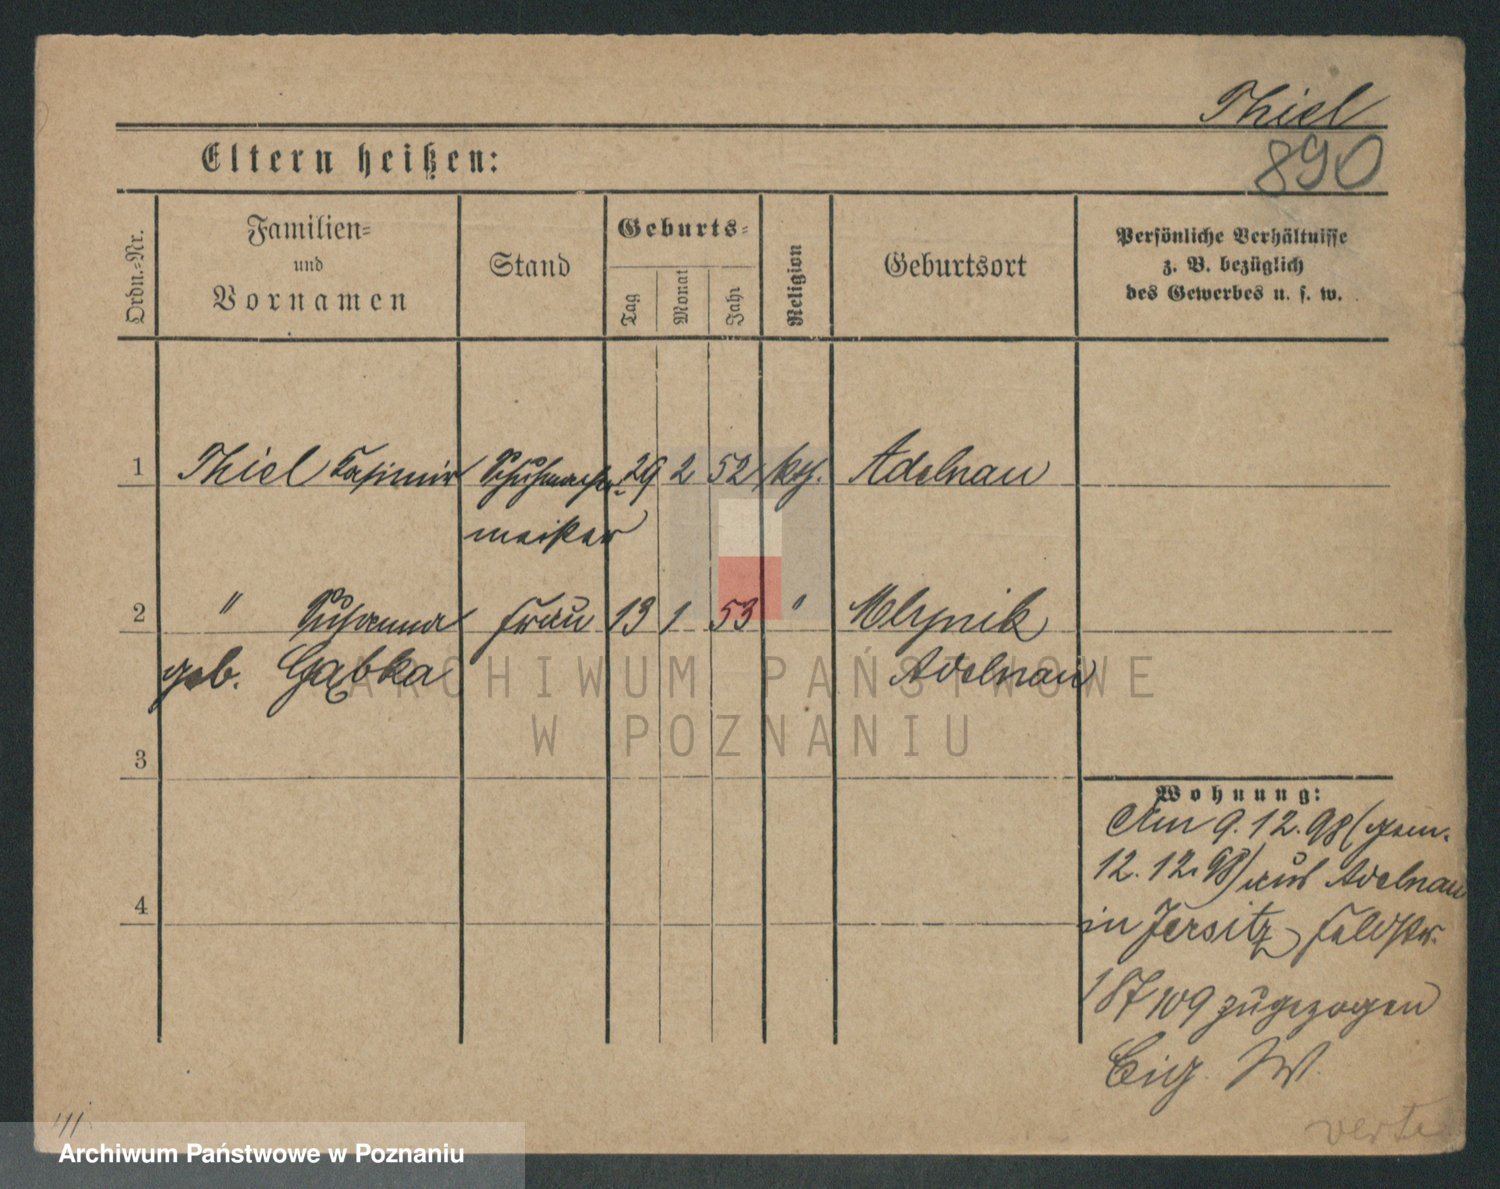 Thiel
890
Eltern heißen:
Ordn.-Nr.
Familien-
und
Vornamen
Stand
Geburts-
Tag
Monat
Jahr
Religion
Geburtsort
Persönliche Verhältnisse
z. B. bezüglich
des Gewerbes u. s. w.
1 Thiel Casimir Schuhmacher- 29 2 52 kth. Adelnau
meister
2 " Susanna Frau 13 1 53 " Mlynik
geb. Gąbka Adelnau
3
4
Wohnung:
Am 9.12.98 (gem.
12.12.98) aus Adelnau
in Jersitz, Feldstr.
187/109 zugezogen
W.
verte
ARCHIWUM PAŃSTWOWE
W POZNANIU
Archiwum Państwowe w Poznaniu